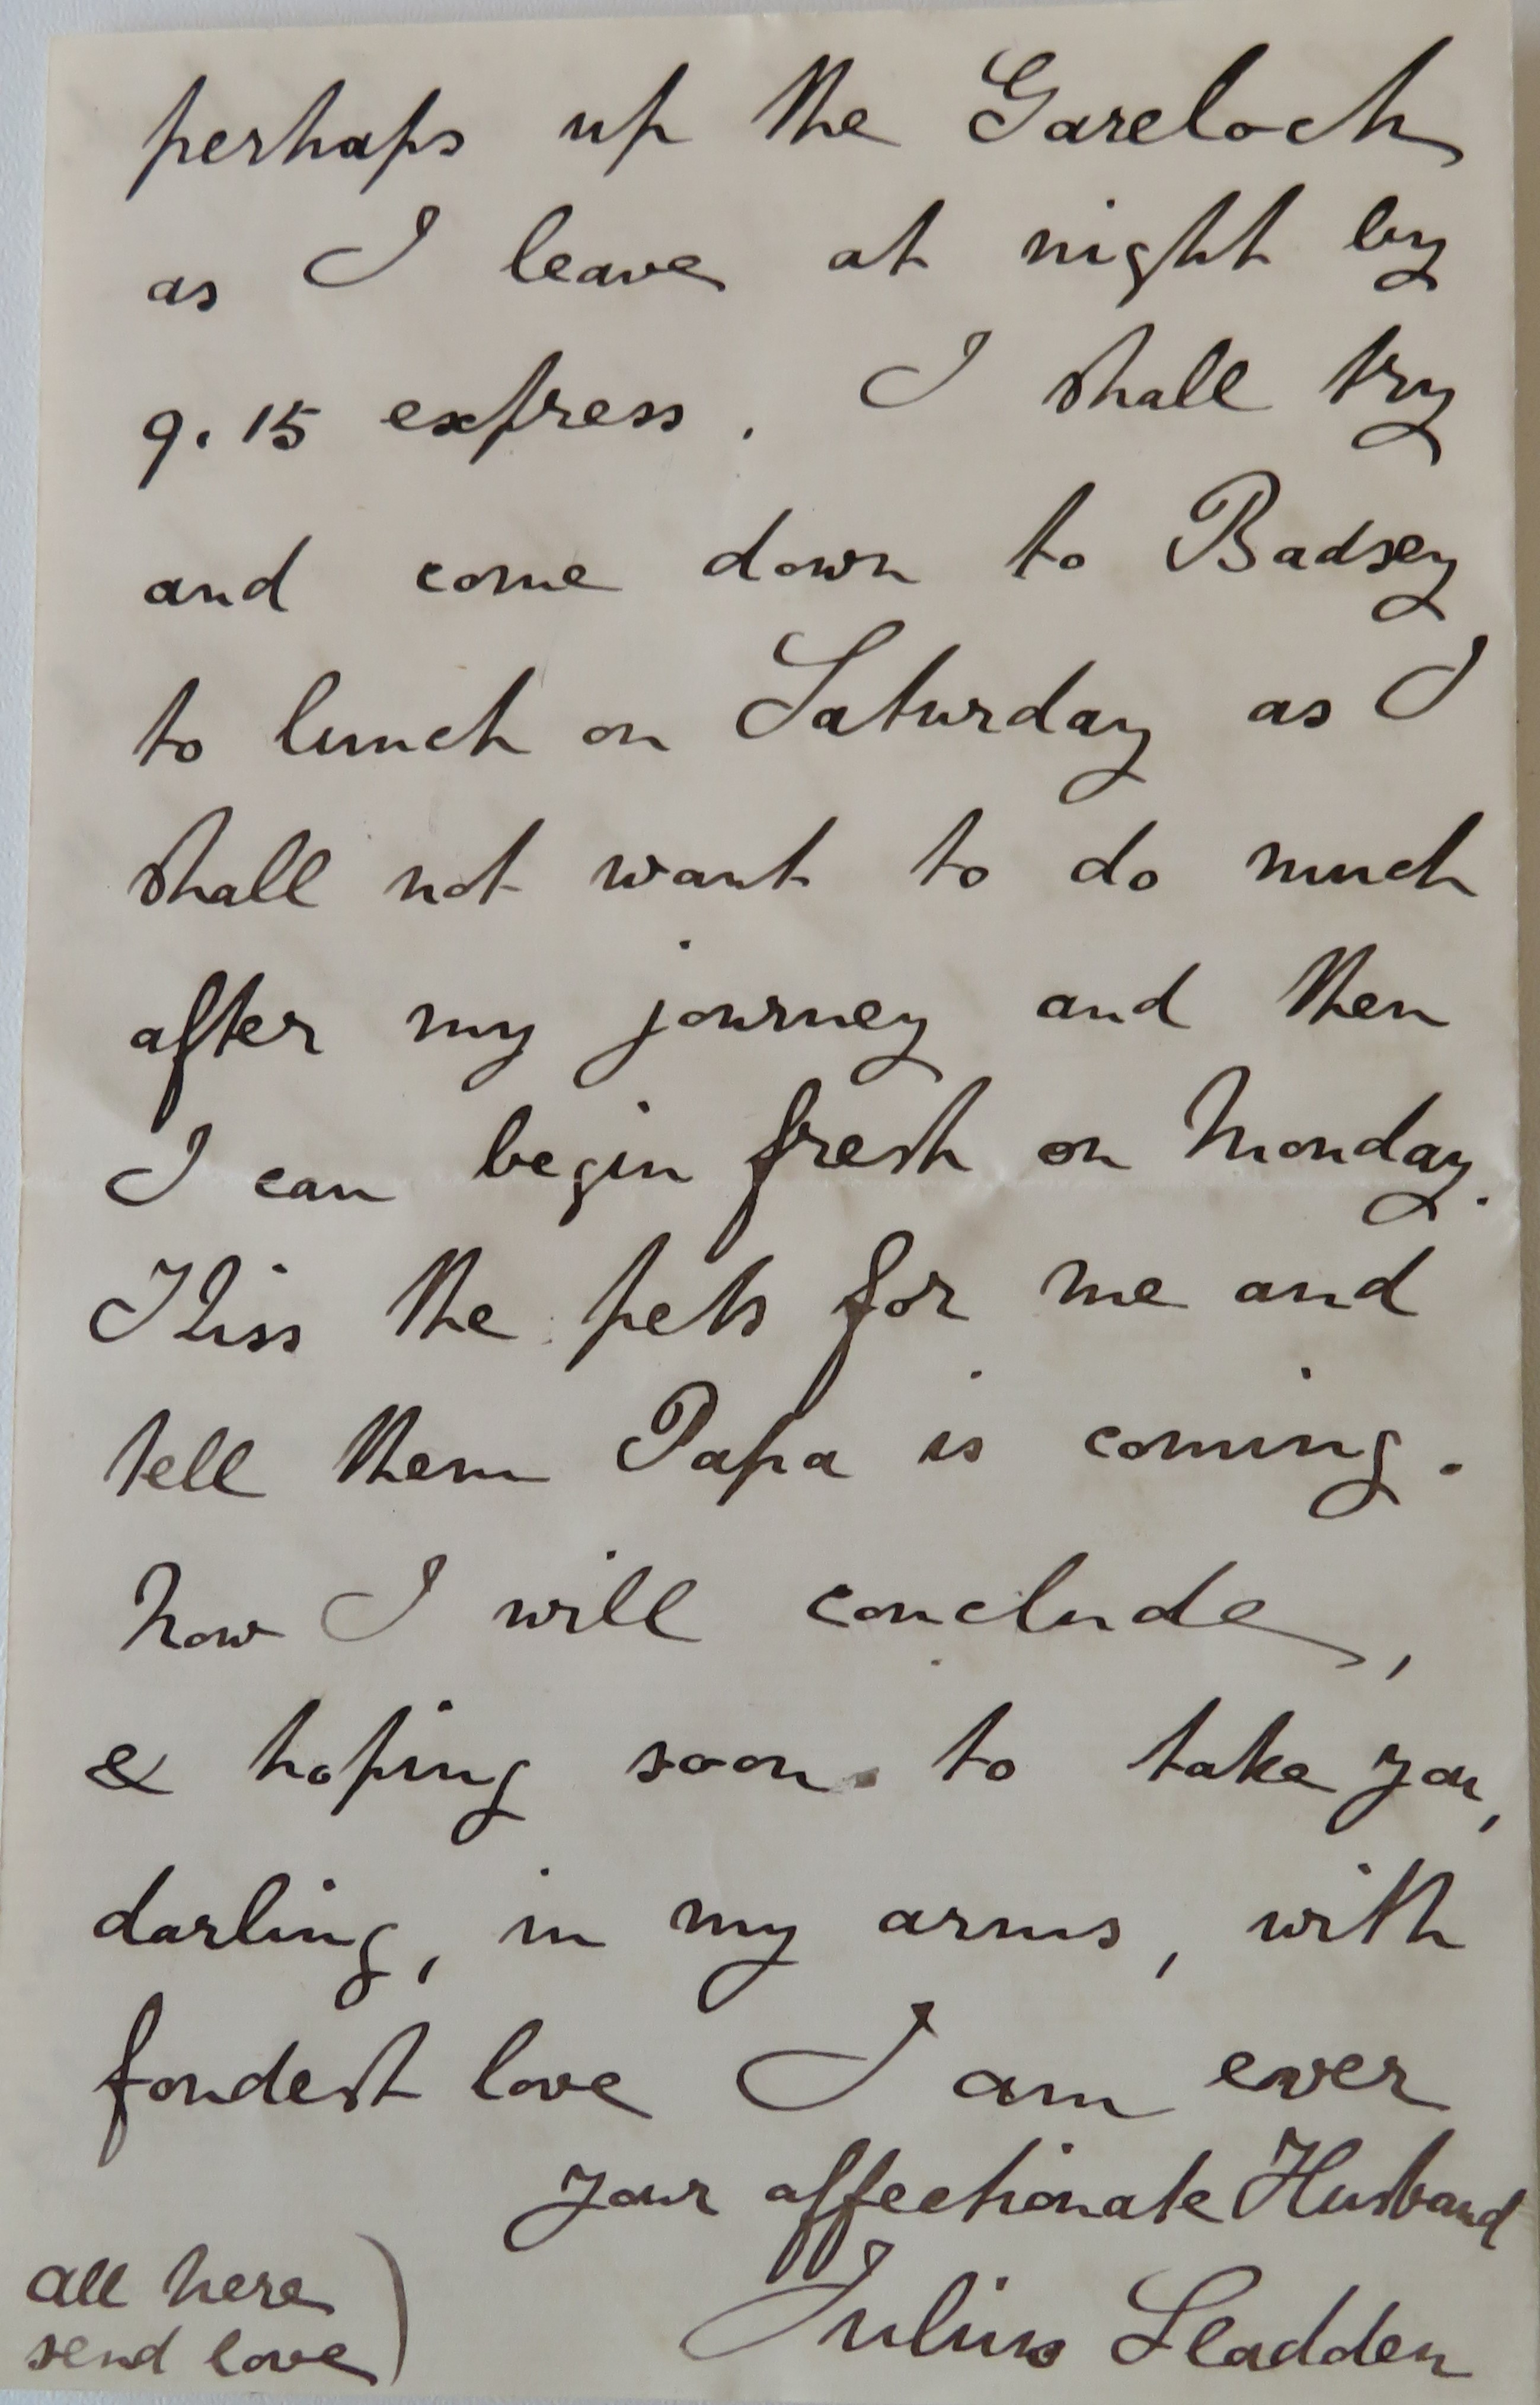 perhaps up the Gareloch
as I leave at night by
9.15 express. I shall try
and come down to Badsey
to lunch on Saturday as I
shall not want to do much
after my journey and then
I can begin fresh on Monday.
Kiss the pets for me and
tell them Papa is coming.
Now I will conclude,
& hoping soon to take you,
darling, in my arms, with
fondest love I am ever
your affectionate Husband
Julius Sladden
all here
send love)